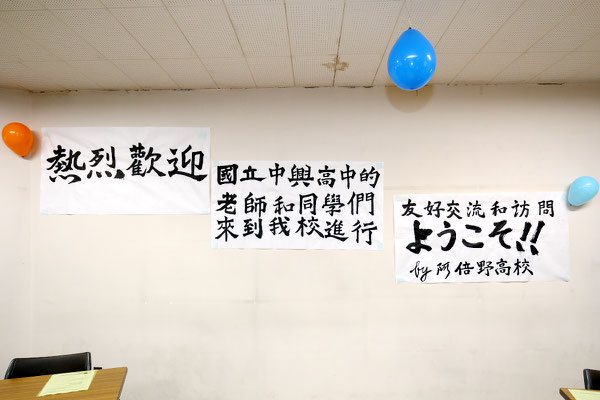 熱烈歡迎
國立中興高中的
老師和同學們
來到我校進行
友好交流和訪問
ようこそ!!
by 阿倍野高校